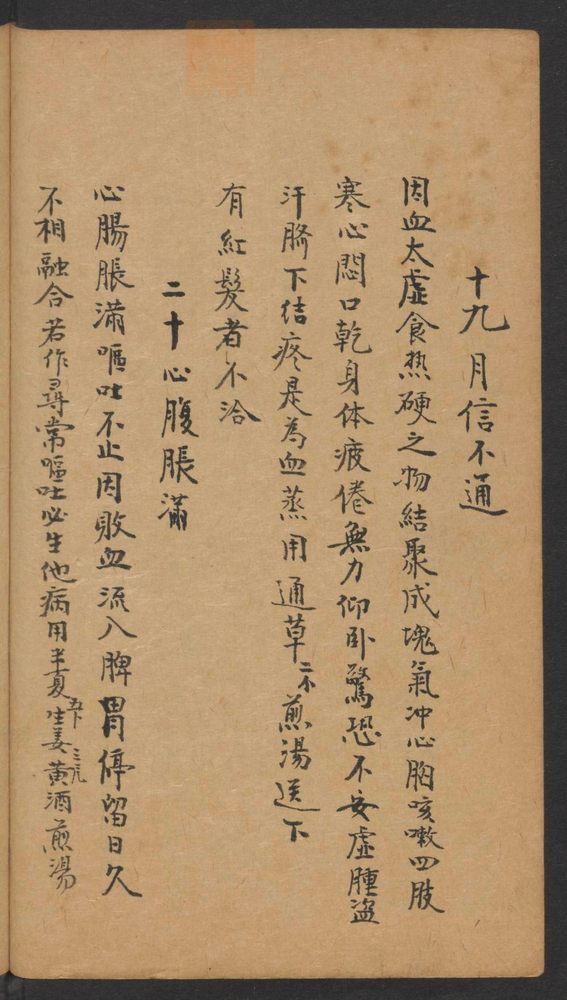 十九 月信不通
因血太虛食热硬之物結聚成塊氣冲心胸咳嗽四肢
寒心悶口乾身体疲倦無力仰卧驚恐不安虛腫盗
汗臍下结疼是為血蒸用通草二个煎湯送下
有紅髮者不治
二十心腹脹滿
心腸脹滿嘔吐不止因败血流入脾胃停留日久
不相融合若作尋常嘔吐必生他病用半夏五卜生姜三片黄酒煎湯